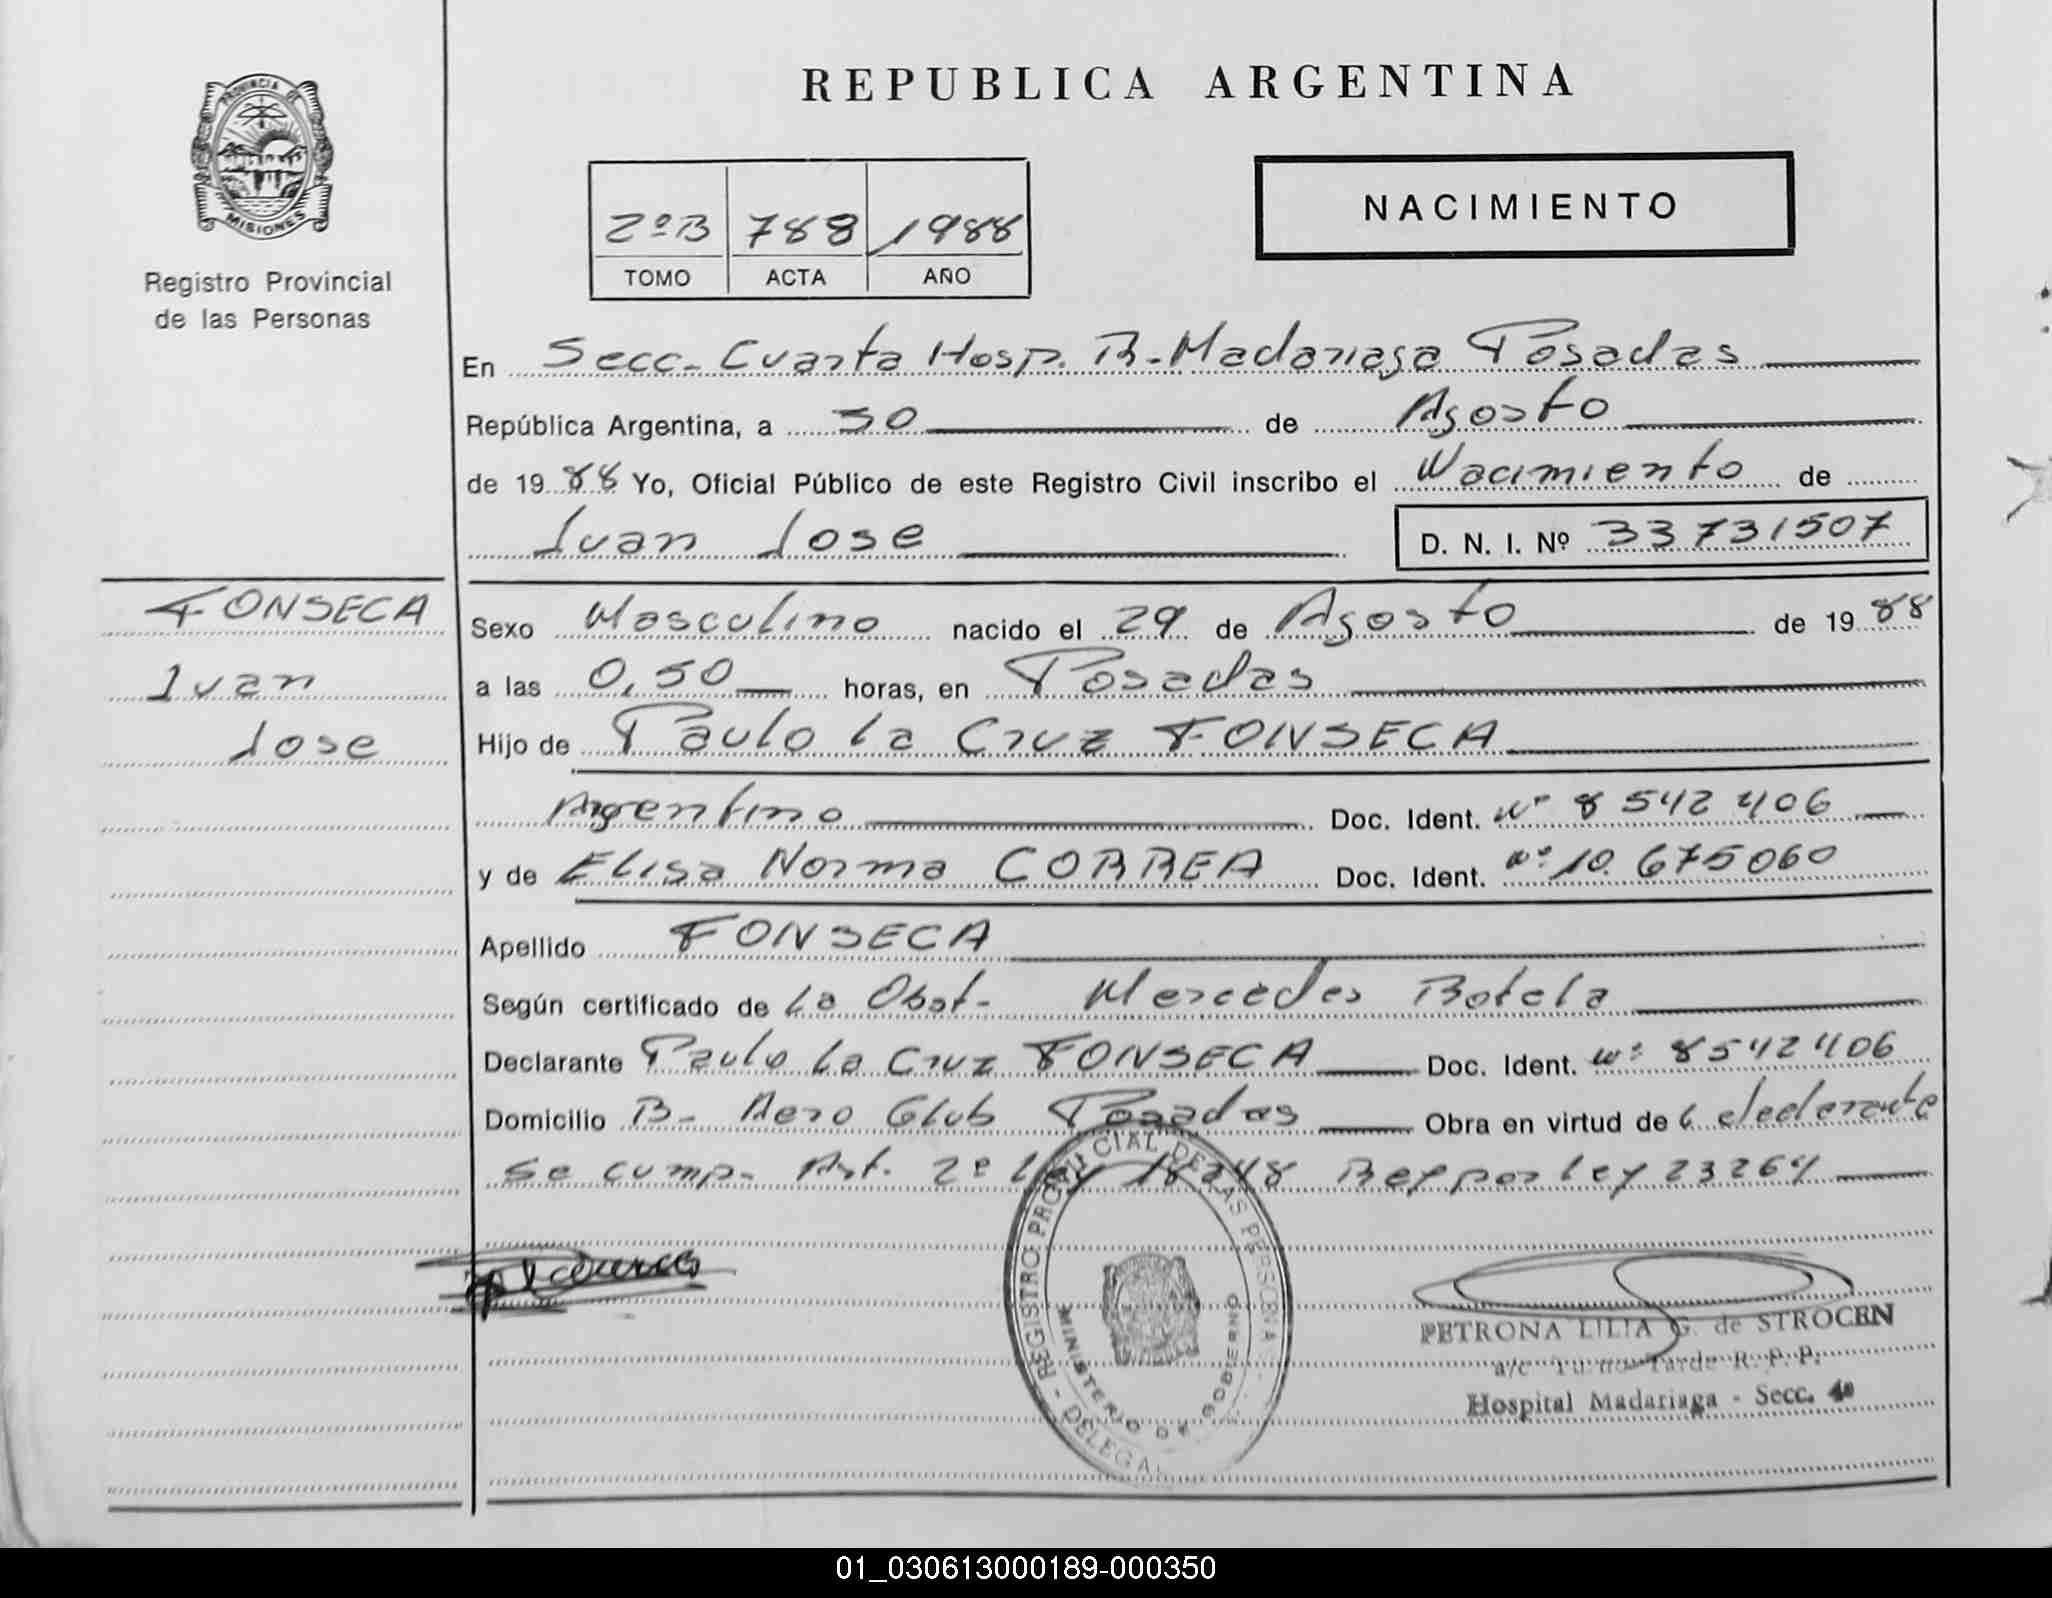 PROVINCIA DE
MISIONES
Registro Provincial
de las Personas
REPUBLICA ARGENTINA
NACIMIENTO
2ºB 788 1988
TOMO ACTA AÑO
En Secc. Cuarta Hosp. R. Madariaga Posadas
República Argentina, a 30 de Agosto
de 1988 Yo, Oficial Público de este Registro Civil inscribo el Nacimiento de
Ivan Jose D. N. I. Nº 33731507
FONSECA
Ivan
Jose
Sexo Masculino nacido el 29 de Agosto de 1988
a las 0,50 horas, en Posadas
Hijo de Paulo la Cruz FONSECA
Argentino Doc. Ident. Nº 8542406
y de Elisa Norma CORREA Doc. Ident. Nº 10.675060
Apellido FONSECA
Según certificado de la Obst. Mercedes Botela
Declarante Paulo la Cruz FONSECA Doc. Ident. Nº 8542406
Domicilio B- Aero Club Posadas Obra en virtud de declarante
Se cump. Art. 2º Ley 18248 Ref por ley 23264
REGISTRO PROVINCIAL DE LAS PERSONAS
MINISTERIO DE GOBIERNO
PETRONA LILIA G. de STROCEN
a/c Turno Tarde R. P. P.
Hospital Madariaga - Secc. 4ª
01_030613000189-000350